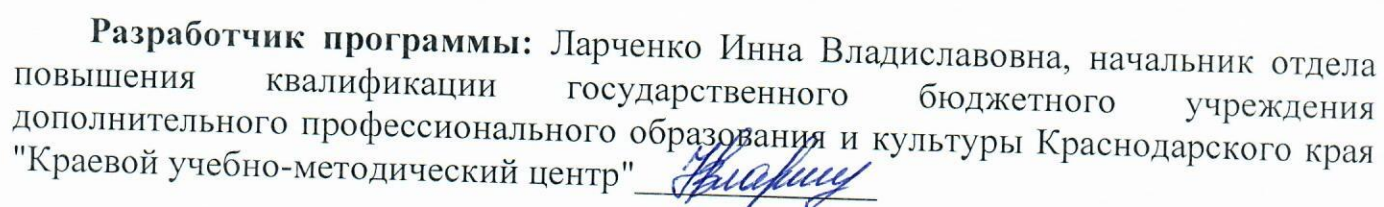 Разработчик программы: Ларченко Инна Владиславовна, начальник отдела
повышения квалификации государственного бюджетного учреждения
дополнительного профессионального образования и культуры Краснодарского края
"Краевой учебно-методический центр"